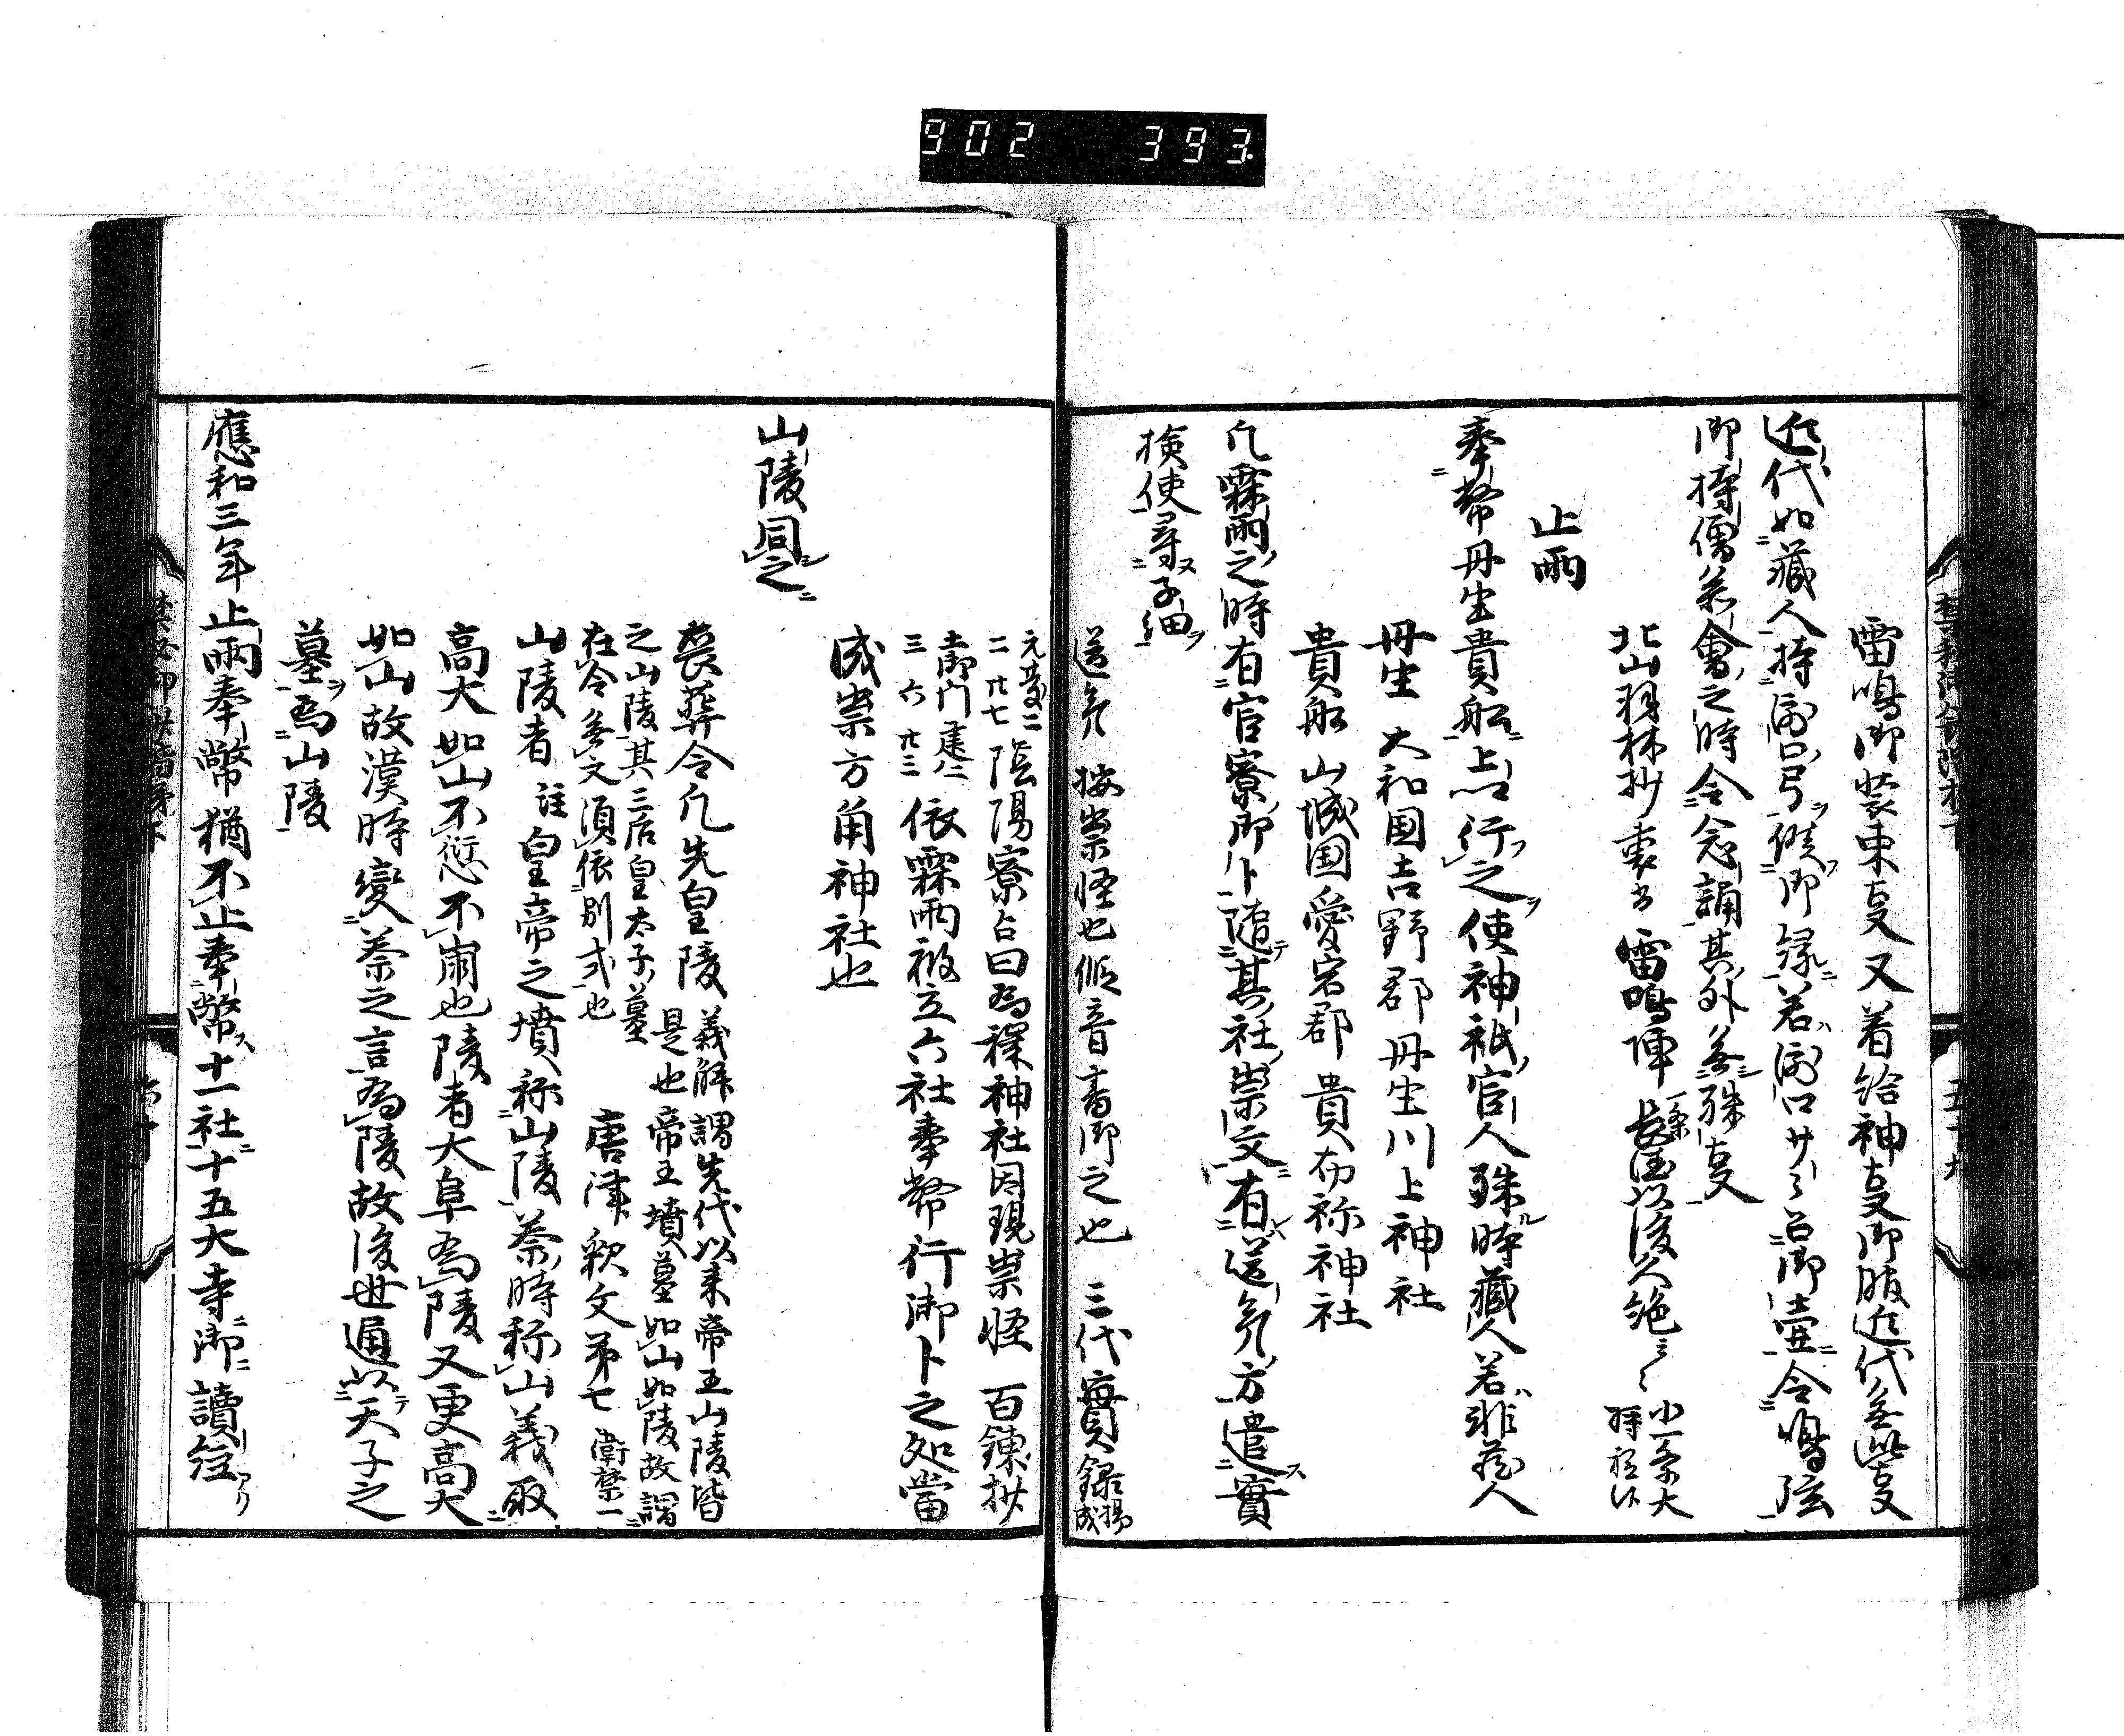 902 393
雷鳴御装束叓又着給神叓御服近代無此叓
近代如蔵人持瀧口弓候御縁若瀧口サハ召御壷令鳴弦
御持僧若會之時令念誦其外無殊叓
北山羽林抄裏書雷鳴陣長徳以後久絶
止雨
奉幣丹生貴船上卿行之使神祇官人殊時蔵人若非蔵人
丹生 大和国吉野郡丹生川上神社
貴船 山城国愛宕郡 貴布祢神社
凡霖雨之時有官寮御卜随其社祟文有送气方遣實
検使尋子細
送气 按祟怪也仮音書御之也 三代實録陽成
元慶二
二 廿七
陰陽寮占曰為穢神社因現祟怪 百錬抄
土御門 建仁二
三 六 廿三
依霖雨被立六社奉幣行御卜之処當
成祟方角神社也
山陵同之
喪葬令凡先皇陵 義解謂先代以来帝王山陵皆
是也帝王墳墓如山如陵故謂
之山陵其三后皇太子墓
在令無文須依別式也
唐律釈文第七 衛禁一
山陵者 註 皇帝之墳称山陵秦時称山義取
高大如山不愆不崩也陵者大阜為陵又更高大
如山故漢時變秦之言為陵故後世通以天子之
墓為山陵
應和三年止雨奉幣猶不止奉幣十一社十五大寺御讀経アリ